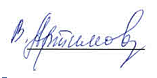 В. Артимов